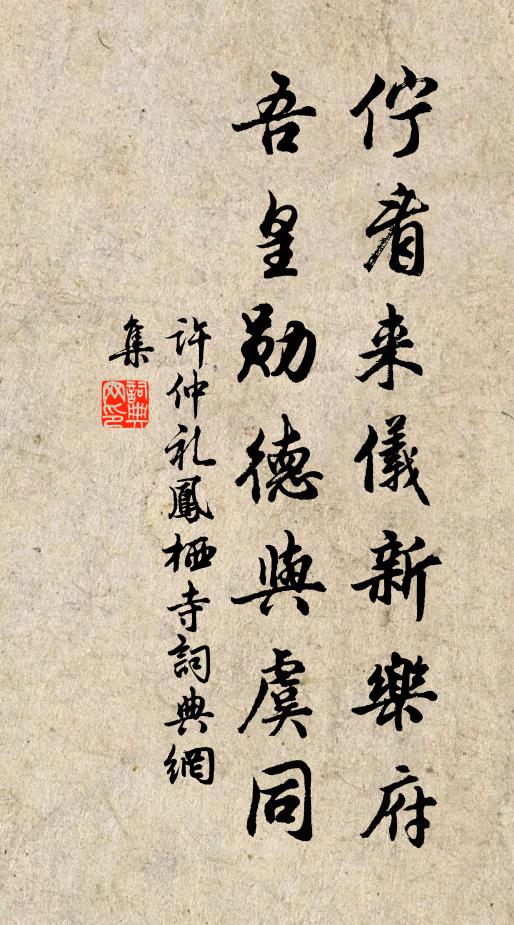 佇看来儀新樂府
吾皇勛德與虞同
許仲礼鳳栖寺詞典網
集
詞典网印